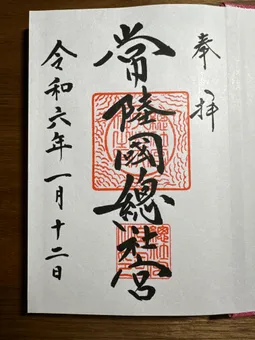 奉拝
常陸國總社宮
令和六年一月十二日